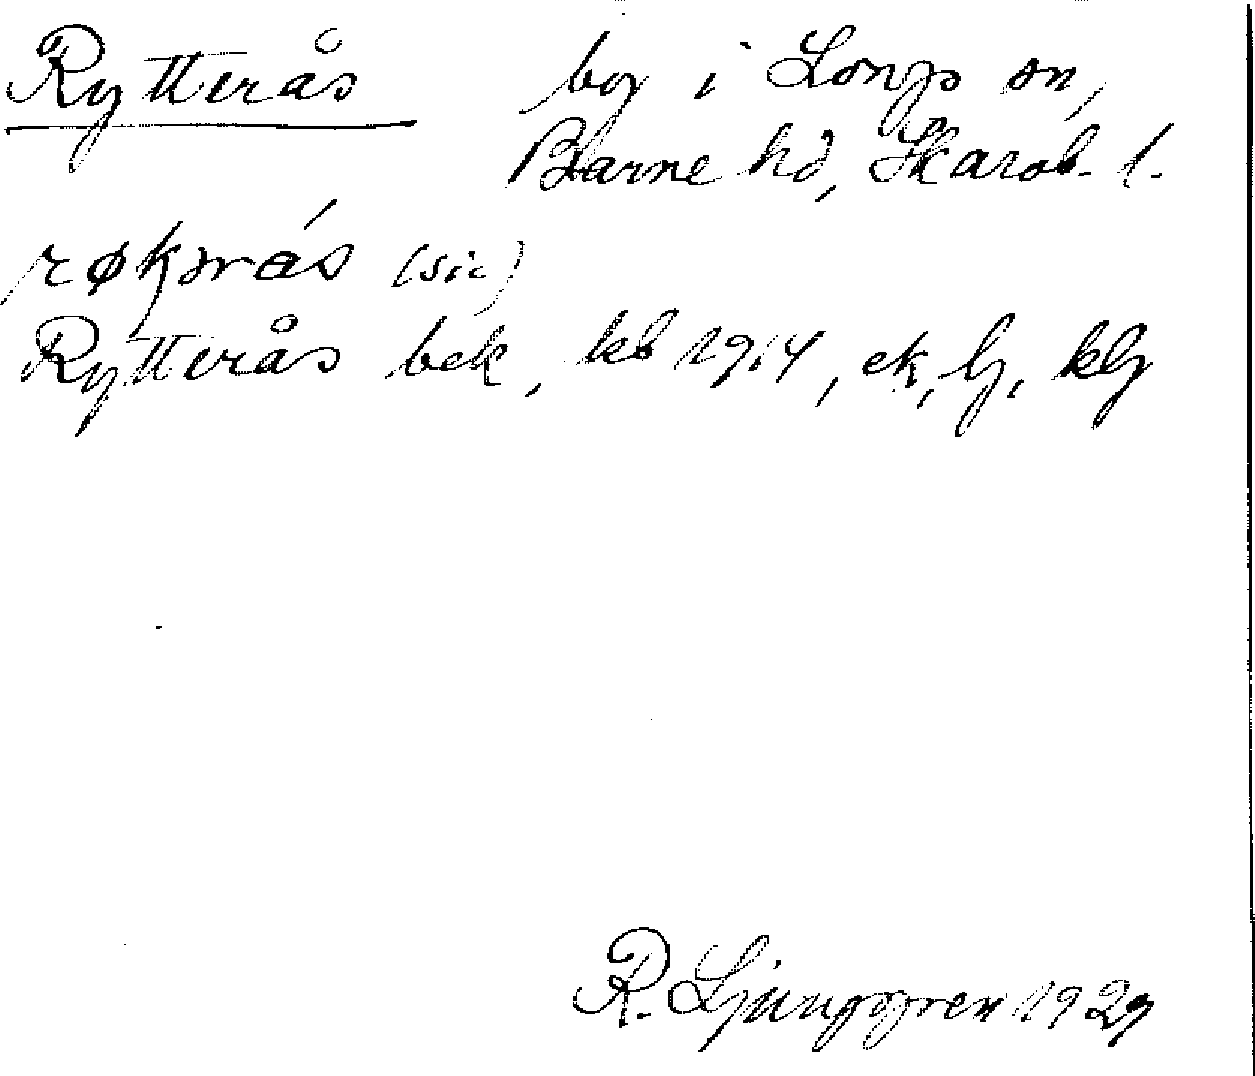 Rytterås by i Longs sn,
Barne hd, Skarab. l.
røkąrás (sic)
Rytterås bek, kb 1914, ek, lj, klj
R. Ljunggren 1929